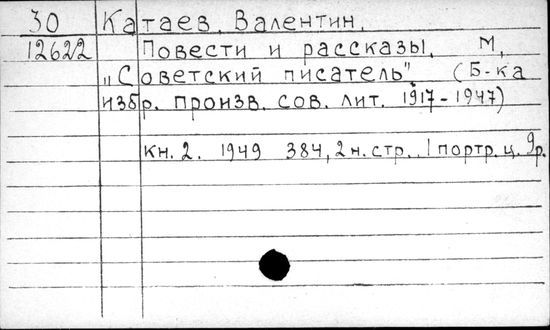 30 Катаев, Валентин.
12622 Повести и рассказы. М,
„Советский писатель". (Б-ка
избр. произв. сов. лит. 1917-1947)
кн. 2. 1949 384, 2 н. стр., 1 портр. ц. 9р.